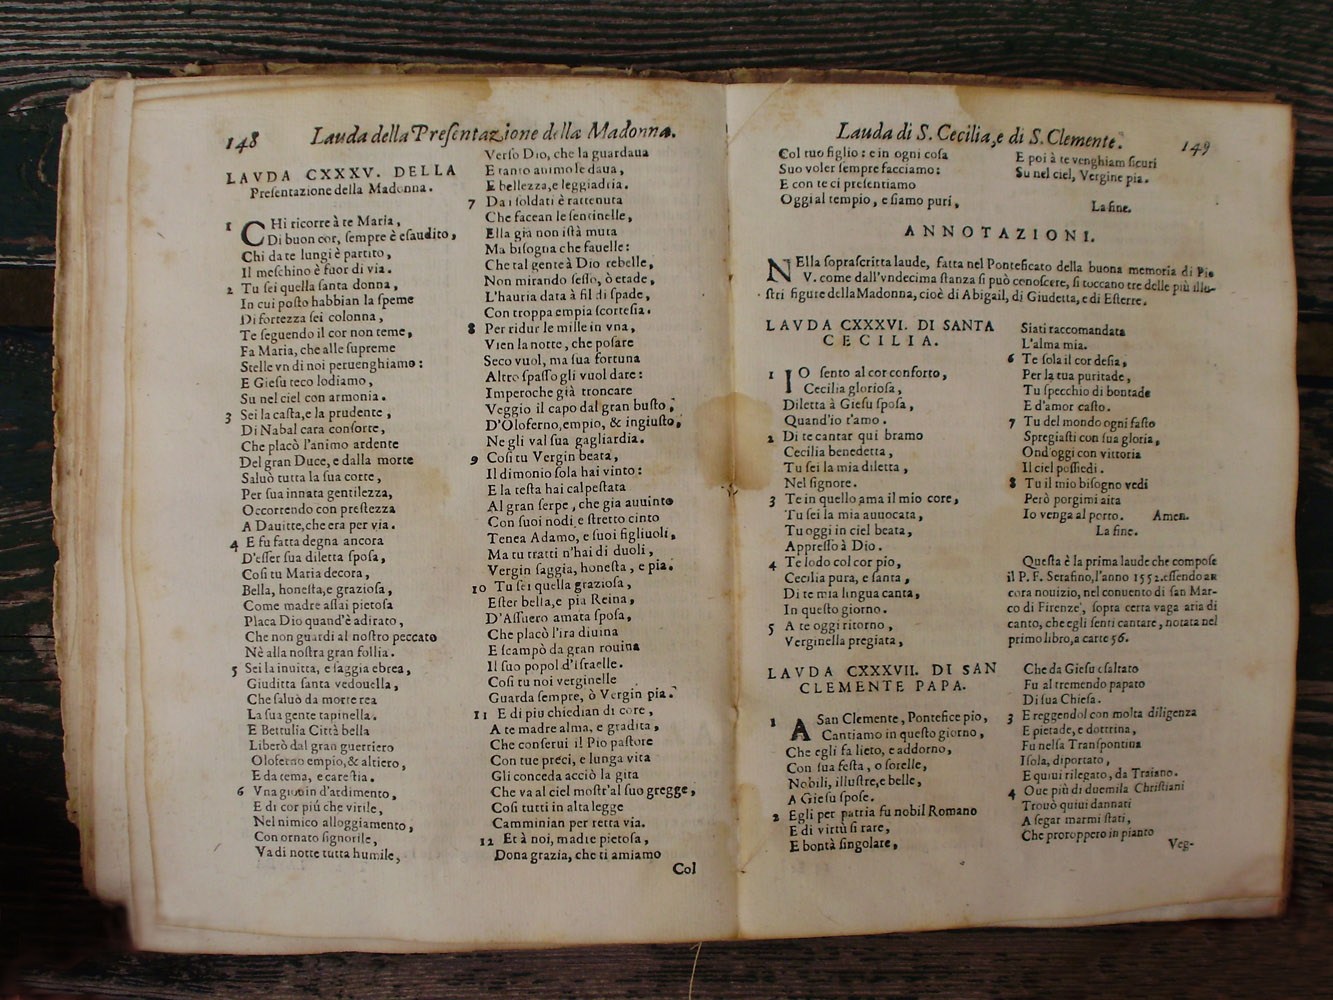 148 Lauda della Preſentazione della Madonna.
LAVDA CXXXV. DELLA
Preſentazione della Madonna.
1 CHi ricorre à te Maria,
Di buon cor, ſempre è eſaudito,
Chi da te lungi è partito,
Il meſchino è fuor di via.
2 Tu ſei quella ſanta donna,
In cui poſto habbian la ſpeme
Di fortezza ſei colonna,
Te ſeguendo il cor non teme,
Fa Maria, che alle ſupreme
Stelle vn dì noi peruenghiamo:
E Gieſu teco lodiamo,
Su nel ciel con armonia.
3 Sei la caſta, e la prudente,
Di Nabal cara conſorte,
Che placò l'animo ardente
Del gran Duce, e dalla morte
Saluò tutta la ſua corte,
Per ſua innata gentilezza,
Occorrendo con preſtezza
A Dauitte, che era per via.
4 E fu fatta degna ancora
D'eſſer ſua diletta ſpoſa,
Coſi tu Maria decora,
Bella, honeſta, e grazioſa,
Come madre aſſai pietoſa
Placa Dio quand'è adirato,
Che non guardi al noſtro peccato
Nè alla noſtra gran follia.
5 Sei la inuitta, e ſaggia ebrea,
Giuditta ſanta vedouella,
Che ſaluò da morte rea
La ſua gente tapinella.
E Bettulia Città bella
Liberò dal gran guerriero
Oloferno empio, & altiero,
E da tema, e careſtia.
6 Vna giuoin d'ardimento,
E di cor più che virile,
Nel nimico alloggiamento,
Con ornato ſignorile,
Va di notte tutta humile,
Verſo Dio, che la guardaua
E tanto animo le daua,
E bellezza, e leggiadria.
7 Da i ſoldati è rattenuta
Che facean le ſentinelle,
Ella già non iſtà muta
Ma biſogna che fauelle:
Che tal gente à Dio rebelle,
Non mirando ſeſſo, ò etade,
L'hauria data à fil di ſpade,
Con troppa empia ſcorteſia.
8 Per ridur le mille in vna,
Vien la notte, che poſare
Seco vuol, ma ſua fortuna
Altro ſpaſſo gli vuol dare:
Imperoche già troncare
Veggio il capo dal gran buſto,
D'Oloferno, empio, & ingiuſto,
Ne gli val ſua gagliardia.
9 Coſi tu Vergin beata,
Il dimonio ſola hai vinto:
E la teſta hai calpeſtata
Al gran ſerpe, che già auuinto
Con ſuoi nodi, e ſtretto cinto
Tenea Adamo, e ſuoi figliuoli,
Ma tu tratti n'hai di duoli,
Vergin ſaggia, honeſta, e pia.
10 Tu ſei quella grazioſa,
Eſter bella, e pia Reina,
D'Aſſuero amata ſpoſa,
Che placò l'ira diuina
E ſcampò da gran rouina
Il ſuo popol d'Iſraelle.
Coſi tu noi verginelle
Guarda ſempre, ò Vergin pia.
11 E di piu chiedian di core,
A te madre alma, e gradita,
Che conſerui il Pio paſtore
Con tue preci, e lunga vita
Gli conceda acciò la gita
Che va al ciel moſtr'al ſuo gregge,
Coſi tutti in alta legge
Camminian per retta via.
12 Et à noi, madre pietoſa,
Dona grazia, che ti amiamo
Col
Lauda di S. Cecilia, e di S. Clemente. 149
Col tuo figlio: e in ogni coſa
Suo voler ſempre facciamo:
E con te ci preſentiamo
Oggi al tempio, e ſiamo puri,
E poi à te venghiam ſicuri
Su nel ciel, Vergine pia.
La fine.
ANNOTAZIONI.
NElla ſopraſcritta laude, fatta nel Ponteficato della buona memoria di Pio
V. come dall'vndecima ſtanza ſi può conoſcere, ſi toccano tre delle più illu-
ſtri figure della Madonna, cioè di Abigail, di Giudetta, e di Eſterre.
LAVDA CXXXVI. DI SANTA
CECILIA.
1 IO ſento al cor conforto,
Cecilia glorioſa,
Diletta à Gieſu ſpoſa,
Quand'io t'amo.
2 Di te cantar qui bramo
Cecilia benedetta,
Tu ſei la mia diletta,
Nel ſignore.
3 Te in quello ama il mio core,
Tu ſei la mia auuocata,
Tu oggi in ciel beata,
Appreſſo à Dio.
4 Te lodo col cor pio,
Cecilia pura, e ſanta,
Di te mia lingua canta,
In queſto giorno.
5 A te oggi ritorno,
Verginella pregiata,
Siati raccomandata
L'alma mia.
6 Te ſola il cor deſia,
Per la tua puritade,
Tu ſpecchio di bontade
E d'amor caſto.
7 Tu del mondo ogni faſto
Spregiaſti con ſua gloria,
Ond'oggi con vittoria
Il ciel poſſiedi.
8 Tu il mio biſogno vedi
Però porgimi aita
Io venga al porto. Amen.
La fine.
Queſta è la prima laude che compoſe
il P. F. Serafino, l'anno 1552. eſſendo an
cora nouizio, nel conuento di ſan Mar-
co di Firenze, ſopra certa vaga aria di
canto, che egli ſentì cantare, notata nel
primo libro, a carte 56.
LAVDA CXXXVII. DI SAN
CLEMENTE PAPA.
1 A San Clemente, Pontefice pio,
Cantiamo in queſto giorno,
Che egli fa lieto, e addorno,
Con ſua feſta, o ſorelle,
Nobili, illuſtre, e belle,
A Gieſu ſpoſe.
2 Egli per patria fu nobil Romano
E di virtù ſi rare,
E bontà ſingolare,
Che da Gieſu eſaltato
Fu al tremendo papato
Di ſua Chieſa.
3 E reggendol con molta diligenza
E pietade, e dottrina,
Fu nella Tranſpontina
Iſola, diportato,
E quiui rilegato, da Traiano.
4 Oue più di duemila Chriſtiani
Trouò quiui dannati
A ſegar marmi ſtati,
Che proroppero in pianto
Veg-